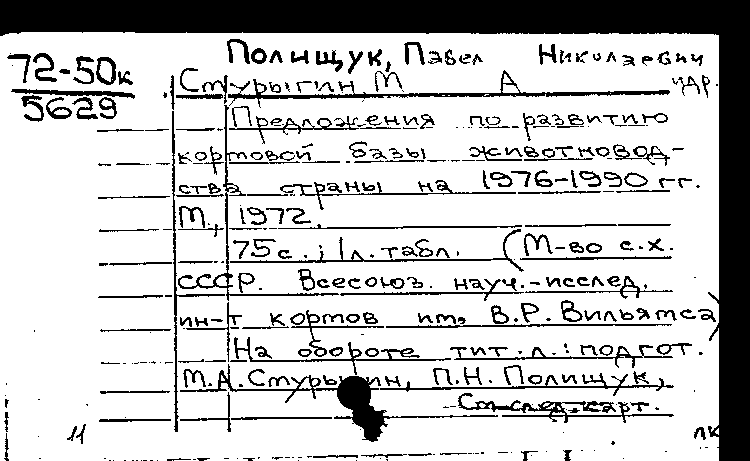 Полищук, Павел Николаевич
72-50к
5629
Стурыгин М А и др.
Предложения по развитию
кормовой базы животновод-
ства страны на 1976-1990 гг.
М., 1972.
75 с.; 1 л. табл. (М-во с.х.
СССР. Всесоюз. науч.-исслед.
ин-т кормов им. В.Р. Вильямса)
На обороте тит. л.: подгот.
М.А. Стурыгин, П.Н. Полищук,
См след. карт.
11 ЛК